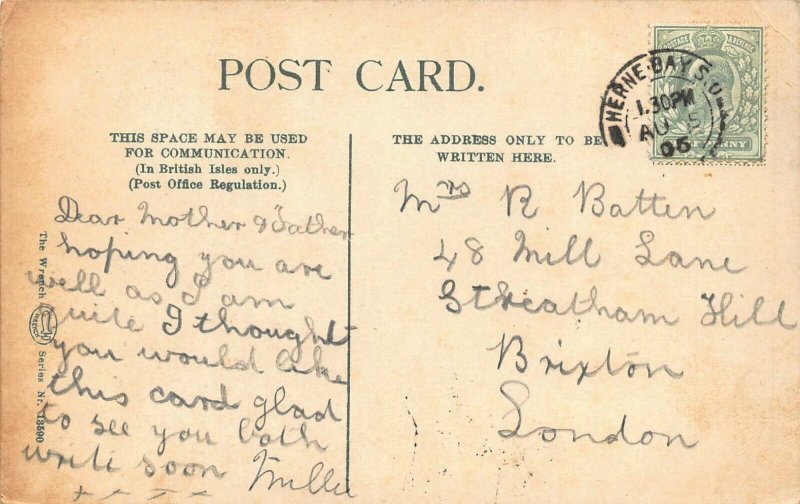 POST CARD.
THIS SPACE MAY BE USED
FOR COMMUNICATION.
(In British Isles only.)
(Post Office Regulation.)
THE ADDRESS ONLY TO BE
WRITTEN HERE.
POSTAGE REVENUE
PENNY
HERNE-BAY S.O
1.30PM
AU 5
06
Dear Mother & Father
hoping you are
well as I am
quite I thought
you would like
this card glad
to see you both
write soon Millie
The Wrench
WRENCH
Series Nr. 13590
Mrs R Batten
48 Mill Lane
Streatham Hill
Brixton
London